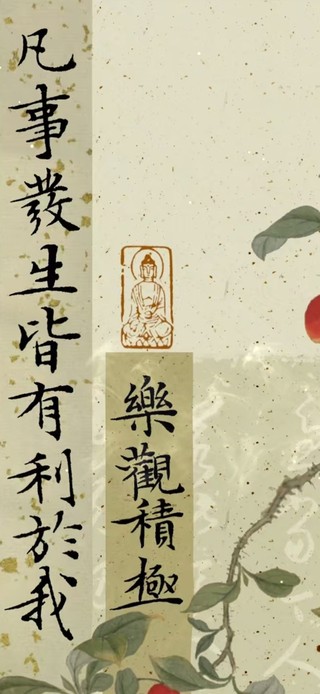 凡事發生皆有利於我
樂觀積極